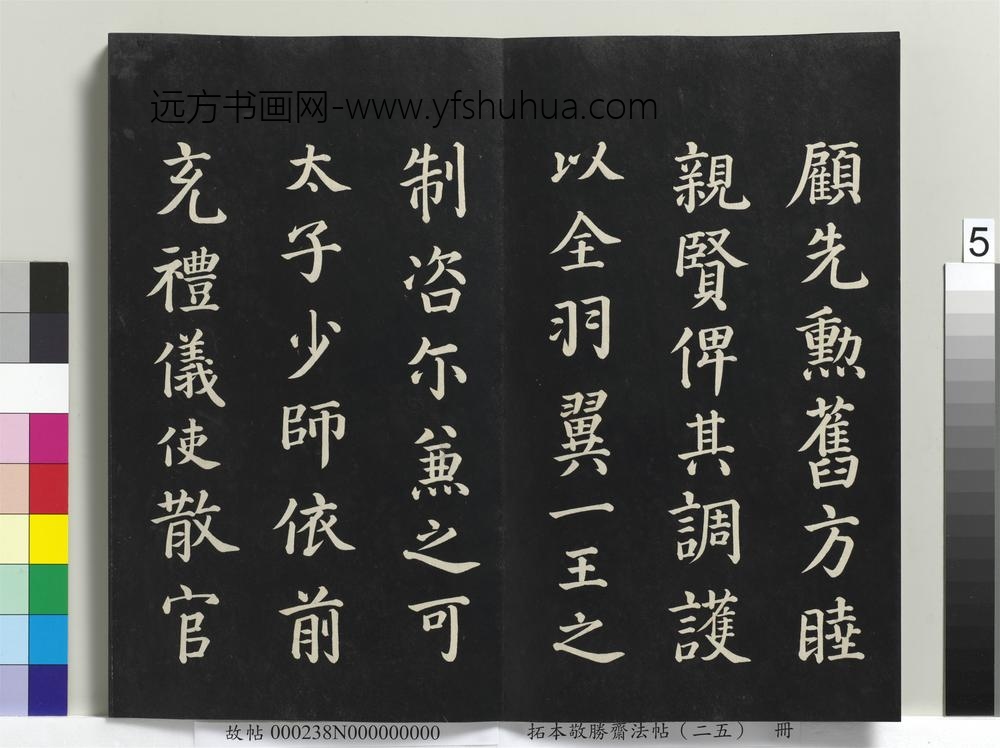 远方书画网-www.yfshuhua.com
顧先勲舊方睦
親賢俾其調護
以全羽翼一王之
制咨尔兼之可
太子少師依前
充禮儀使散官
5
故帖 000238N000000000
拓本敬勝齋法帖（二五） 冊